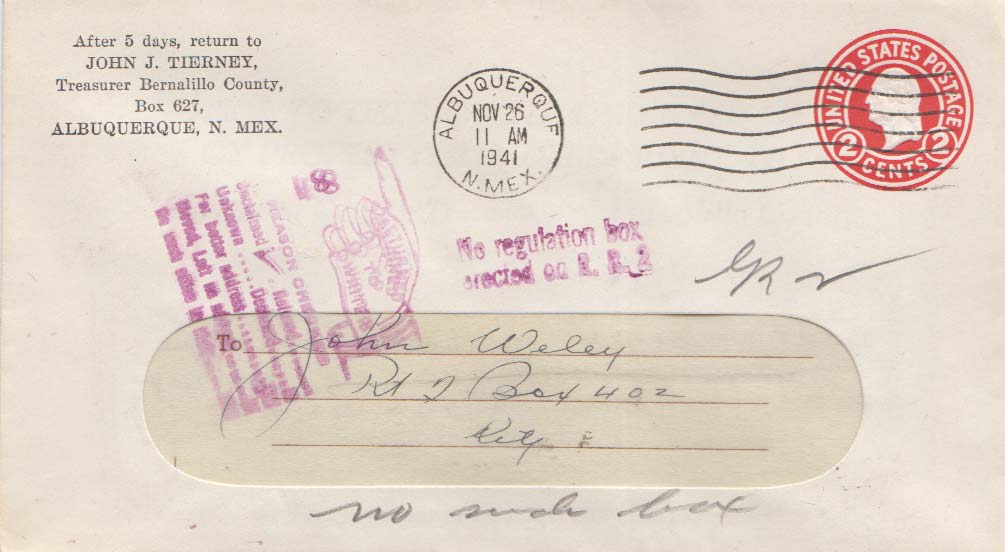 After 5 days, return to
JOHN J. TIERNEY,
Treasurer Bernalillo County,
Box 627,
ALBUQUERQUE, N. MEX.
ALBUQUERQUE
NOV 26
11 AM
1941
N. MEX.
UNITED STATES POSTAGE
2 CENTS 2
REASON
Unclaimed
Unknown
For better address
Moved, Left no
No such office
No regulation box
erected on R. R. 2
To John Weley
Rt 2 Box 402
no such box